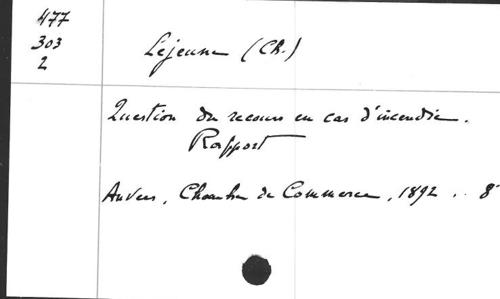 477
303
2
Lejeune (Ch.)
Question du recours en cas d'incendie.
Rapport
Anvers, Chambre de Commerce, 1892 .. 8°